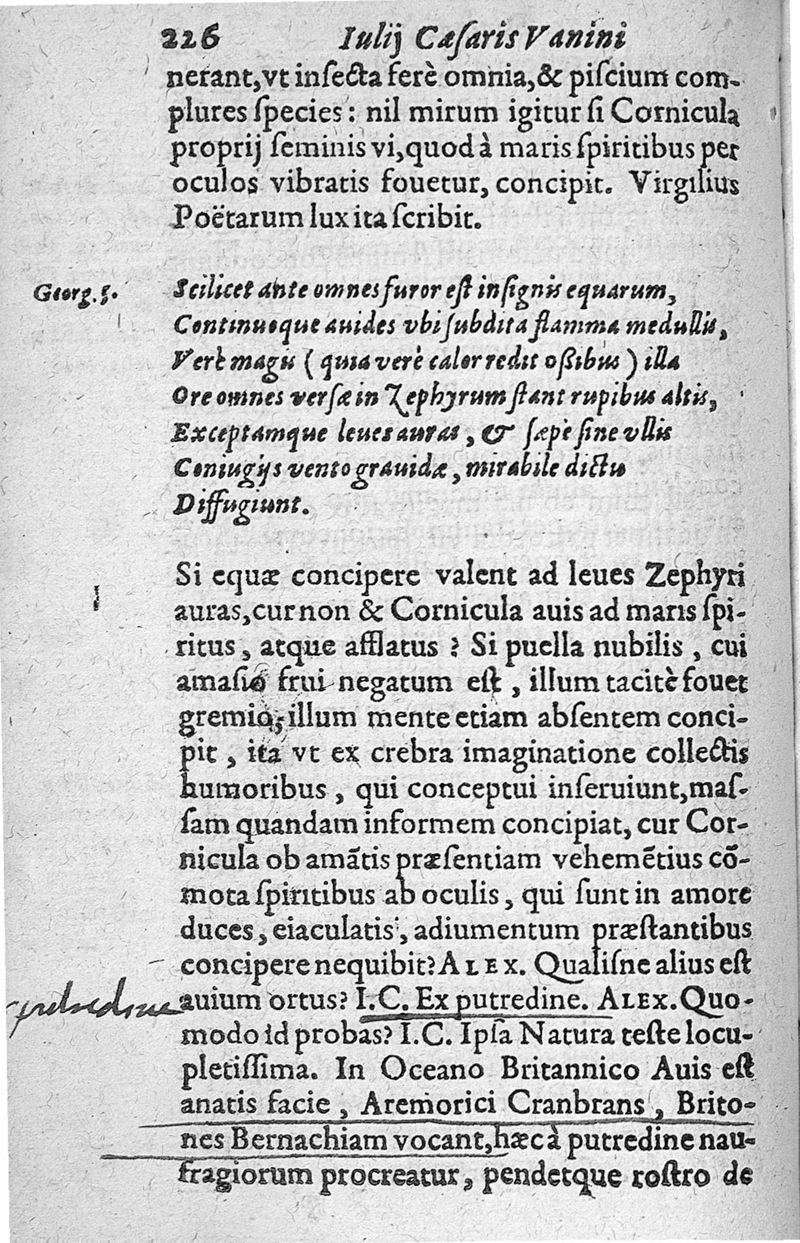 226 Iulij Cæſaris Vanini
nerant, vt inſecta ferè omnia, & piſcium com-
plures ſpecies: nil mirum igitur ſi Cornicula
proprij ſeminis vi, quod à maris ſpiritibus per
oculos vibratis fouetur, concipit. Virgilius
Poëtarum lux ita ſcribit.
Georg. 3. Scilicet ante omnes furor eſt inſignis equarum,
Continuoque auides vbi ſubdita flamma medullis,
Verè magis (quia verè calor redit oſſibus) illa
Ore omnes verſæ in Zephyrum ſtant rupibus altis,
Exceptamque leues auras, & ſæpè ſine vllis
Coniugijs vento grauidæ, mirabile dictu
Diffugiunt.
Si equæ concipere valent ad leues Zephyri
auras, cur non & Cornicula auis ad maris ſpi-
ritus, atque afflatus? Si puella nubilis, cui
amaſio frui negatum eſt, illum tacitè fouet
gremio, illum mente etiam abſentem conci-
pit, ita vt ex crebra imaginatione collectis
humoribus, qui conceptui inſeruiunt, maſ-
ſam quandam informem concipiat, cur Cor-
nicula ob amãtis præſentiam vehemẽtius cõ-
mota ſpiritibus ab oculis, qui ſunt in amore
duces, eiaculatis, adiumentum præſtantibus
concipere nequibit? ALEX. Qualiſne alius eſt
auium ortus? I.C. Ex putredine. ALEX. Quo-
modo id probas? I.C. Ipſa Natura teſte locu-
pletiſſima. In Oceano Britannico Auis eſt
anatis facie, Aremorici Cranbrans, Brito-
nes Bernachiam vocant, hæc à putredine nau-
fragiorum procreatur, pendetque roſtro de